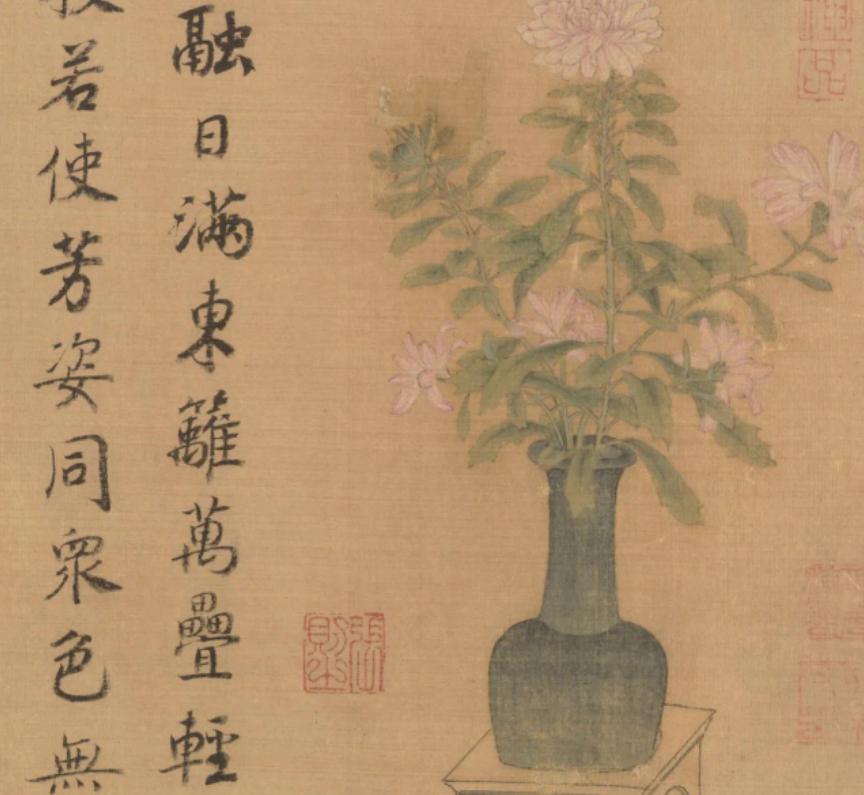 融日滿東籬萬疊輕
若使芳姿同衆色無